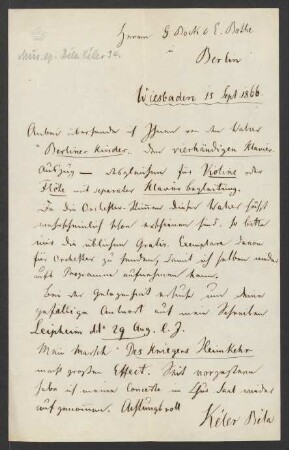 Herrn G Bock & E. Bothe
Mus. ep. Béla Kéler 34.
Berlin
Wiesbaden 15 Sept 1866
Anbei übersende ich Ihnen von dem Walzer
"Berliner Kinder" den vierhändigen Klavier-
Auszug — desgleichen für Violine oder
Flöte mit separater Klavierbegleitung.
Da die Orchester-Stimmen dieses Walzer höchst
wahrscheinlich schon erschienen sind, so bitte
mir die üblichen Gratis Exemplare davon
für Orchester zu senden, damit ich selben wieder
aufs Programm aufnehmen kann.
Bei der Gelegenheit ersuche um deine
gefällige Antwort auf mein Schreiben
Leipheim ddt 29 Aug. l. J.
Mein Marsch "Des Kriegers Heimkehr"
macht großen Effect. Seit vorgestern
habe ich meine Concerte im Saal wieder
aufgenommen. Achtungsvoll
Kéler Béla